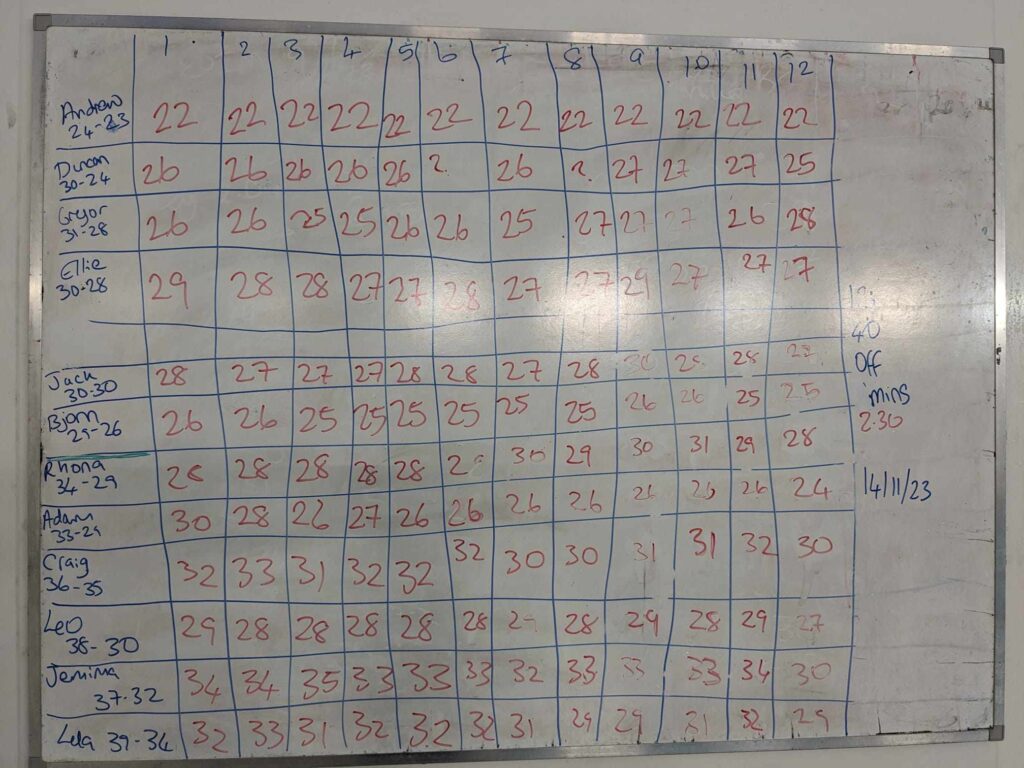 1 2 3 4 5 6 7 8 9 10 11 12
Andrew 22 22 22 22 22 22 22 22 22 22 22 22
24-23
Duncan 26 26 26 26 26 2. 26 2. 27 27 27 25
30-24
Gregor 26 26 25 25 26 26 25 27 27 27 26 28
31-28
Ellie 29 28 28 27 27 28 27 27 29 27 27 27
30-28
40
Jack 28 27 27 27 28 28 27 28 30 28 28 27
30-30
Off
Bjorn 26 26 25 25 25 25 25 25 26 26 25 25
29-26
mins
2:30
Rhona 28 28 28 28 28 30 29 30 31 29 28
34-29
14/11/23
Adam 30 28 26 27 26 26 26 26 26 26 26 24
33-29
Craig 32 33 31 32 32 32 30 30 31 31 32 30
36-35
Leo 29 28 28 28 28 28 28 29 28 29 27
38-30
Jemima 34 34 35 33 33 33 32 33 33 33 34 30
37-32
Lela 39-34 32 33 31 32 32 32 31 29 29 31 32 29